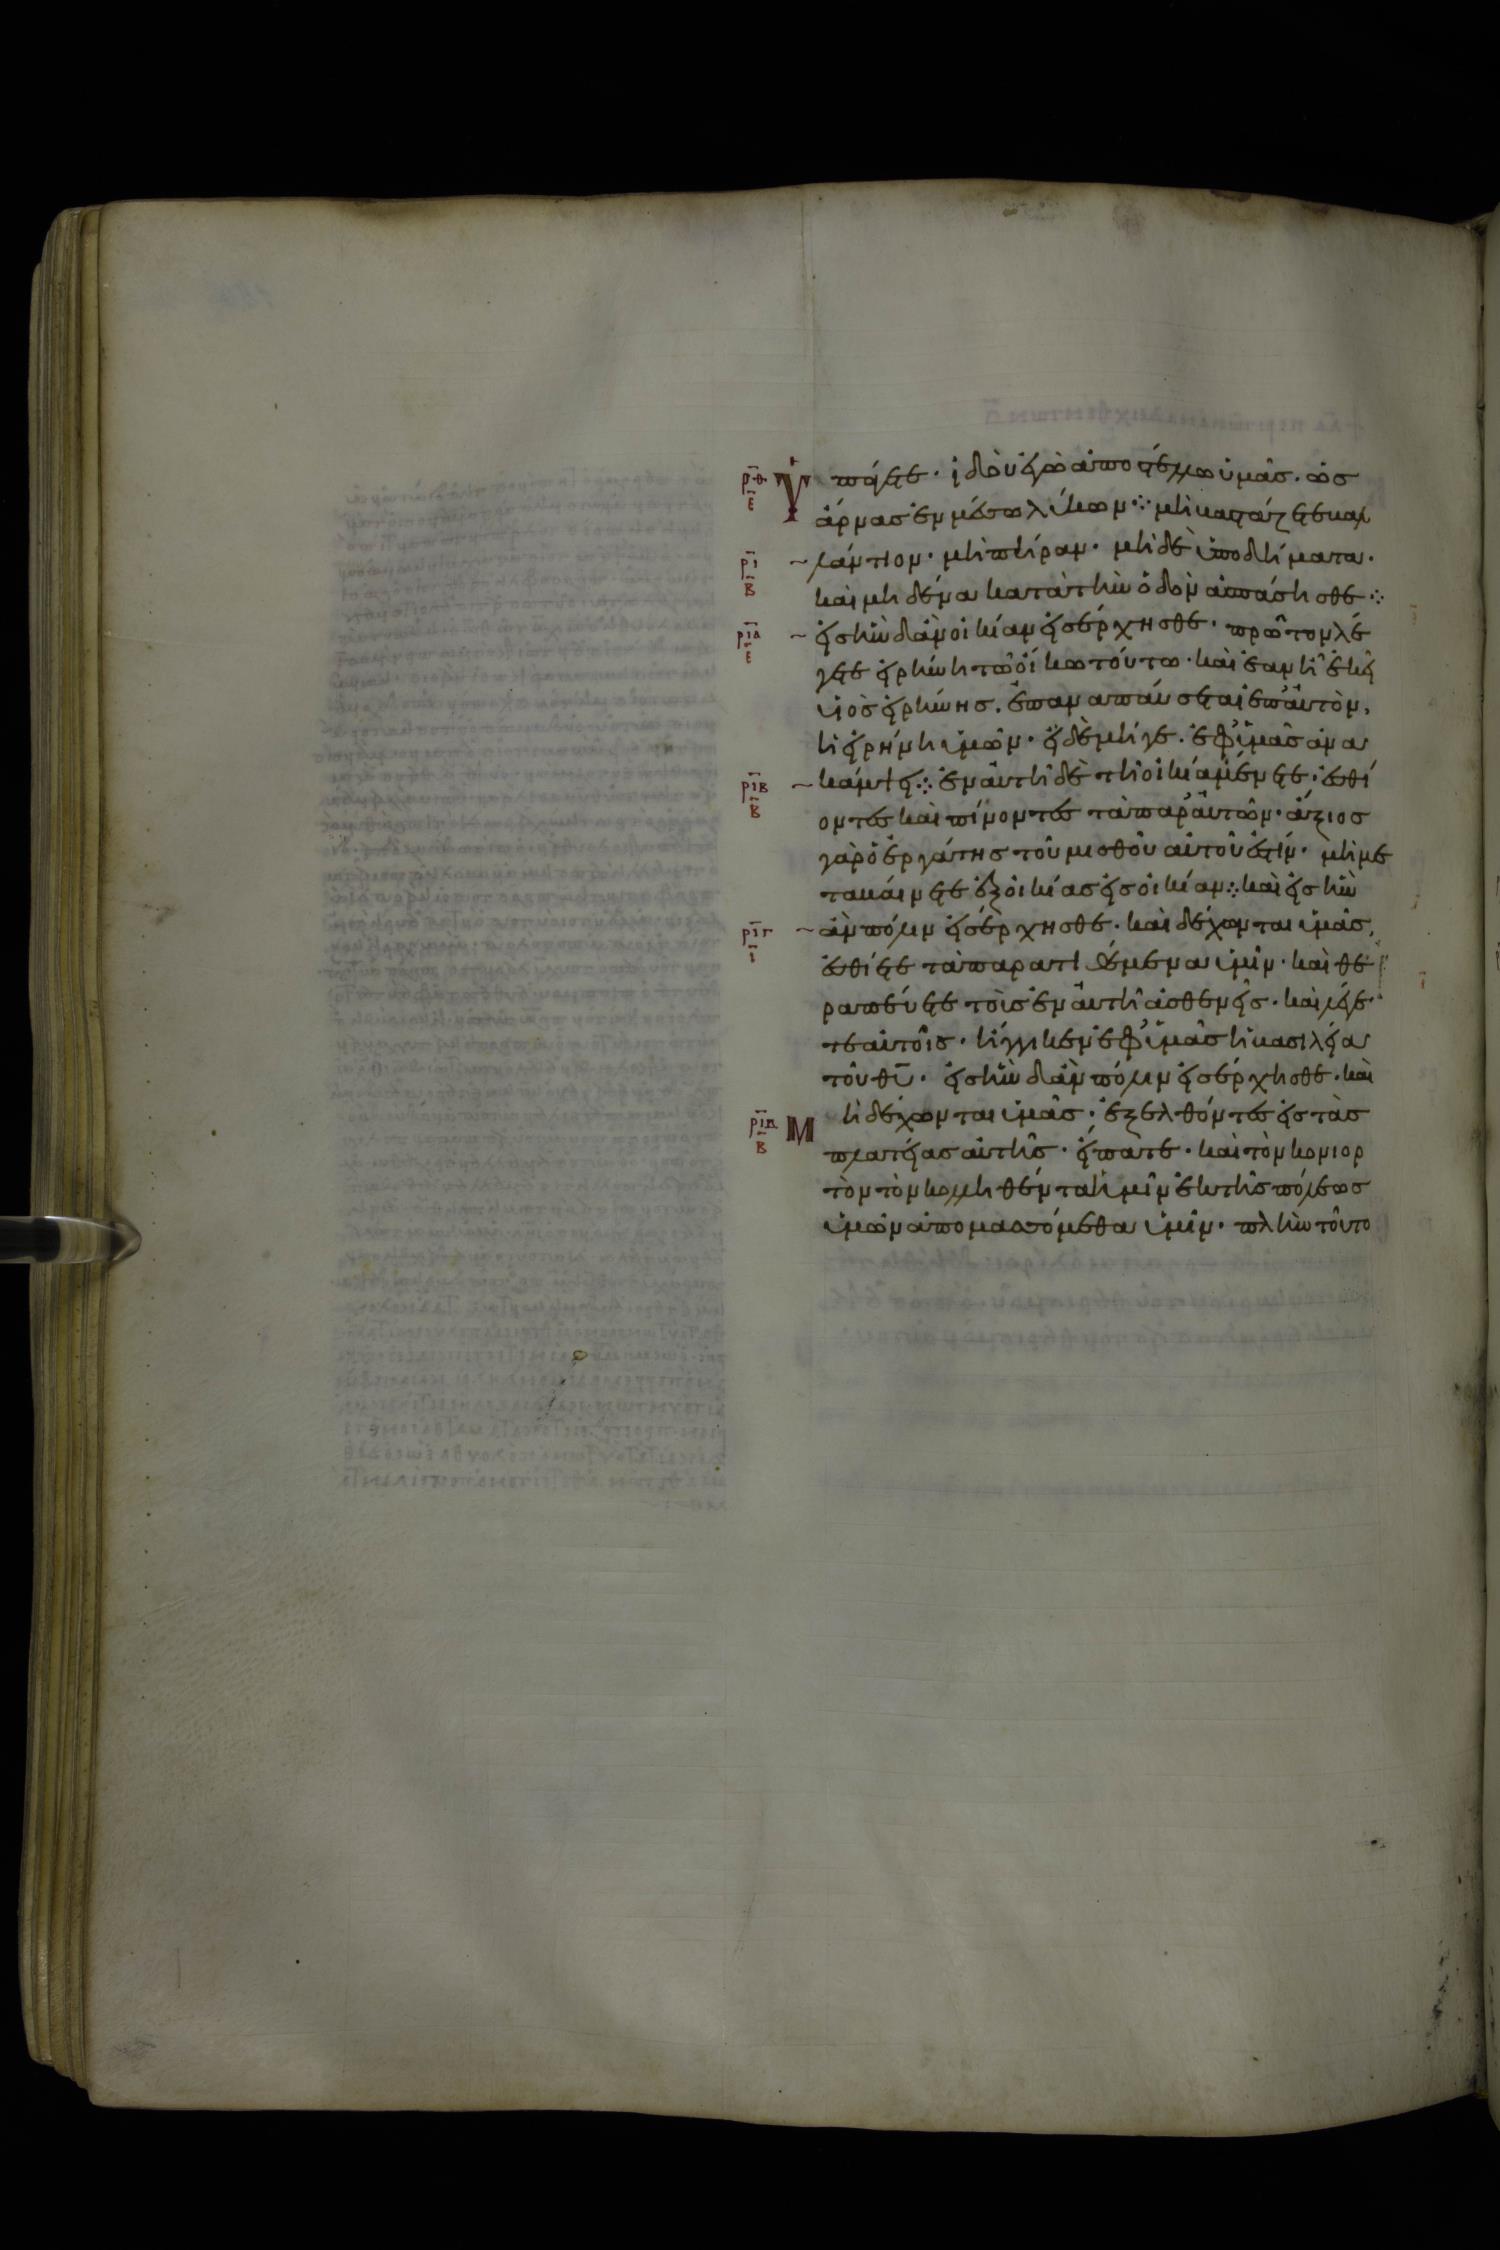 ρθ ε Ὑπάγετε· ἰδοὺ ἐγὼ ἀποστέλλω ὑμᾶς· ὡς
ἄρνας ἐν μέσω λύκων ⁘ μὴ βαστάζετε βαλ
ρι β λάντιον· μὴ πήραν· μὴ δὲ ὑποδήματα·
καὶ μηδένα κατὰ τὴν ὁδὸν ἀσπάσησθε ⁘
ρια ε εἰς ἣν δἂν οἰκίαν εἰσέρχησθε· πρῶτον λέ
γετε εἰρήνη τῶ οἴκω τούτω· καὶ ἐὰν ἦ ἐκεῖ
υἱὸς εἰρήνης. ἐπαναπαύσεται ἐπ' αὐτὸν,
ἡ εἰρήνη ὑμῶν· εἰ δὲ μήγε. ἐφ' ὑμᾶς ἀνα
ριβ β κάμψει ⁘ ἐν αὐτῆ δὲ τῆ οἰκία μένετε· ἐσθί
οντες καὶ πίνοντες τὰ παρ' αὐτῶν· ἄξιος
γὰρ ὁ ἐργάτης τοῦ μισθοῦ αὐτοῦ ἐστίν· μὴ με
ταβαίνετε ἐξ οἰκίας εἰς οἰκίαν ⁘ καὶ εἰς ἣν
ριγ ι ἂν πόλιν εἰσέρχησθε· καὶ δέχωνται ὑμᾶς,
ἐσθίετε τὰ παρατιθέμενα ὑμῖν· καὶ θε
ραπεύετε τοῖς ἐν αὐτῆ ἀσθενεῖς· καὶ λέγε
τε αὐτοῖς· ἤγγικεν ἐφ' ὑμᾶς ἡ βασιλεία
τοῦ θ̅υ̅· εἰς ἣν δἂν πόλιν εἰσέρχησθε· καὶ
ριδ β Μὴ δέχωνται ὑμᾶς· ἐξελθόντες εἰς τὰς
πλατείας αὐτῆς· εἴπατε· καὶ τὸν κονιορ
τὸν τὸν κολληθέντα ἡμῖν ἐκ τῆς πόλεως
ὑμῶν ἀπομασσόμεθα ὑμῖν· πλὴν τοῦτο